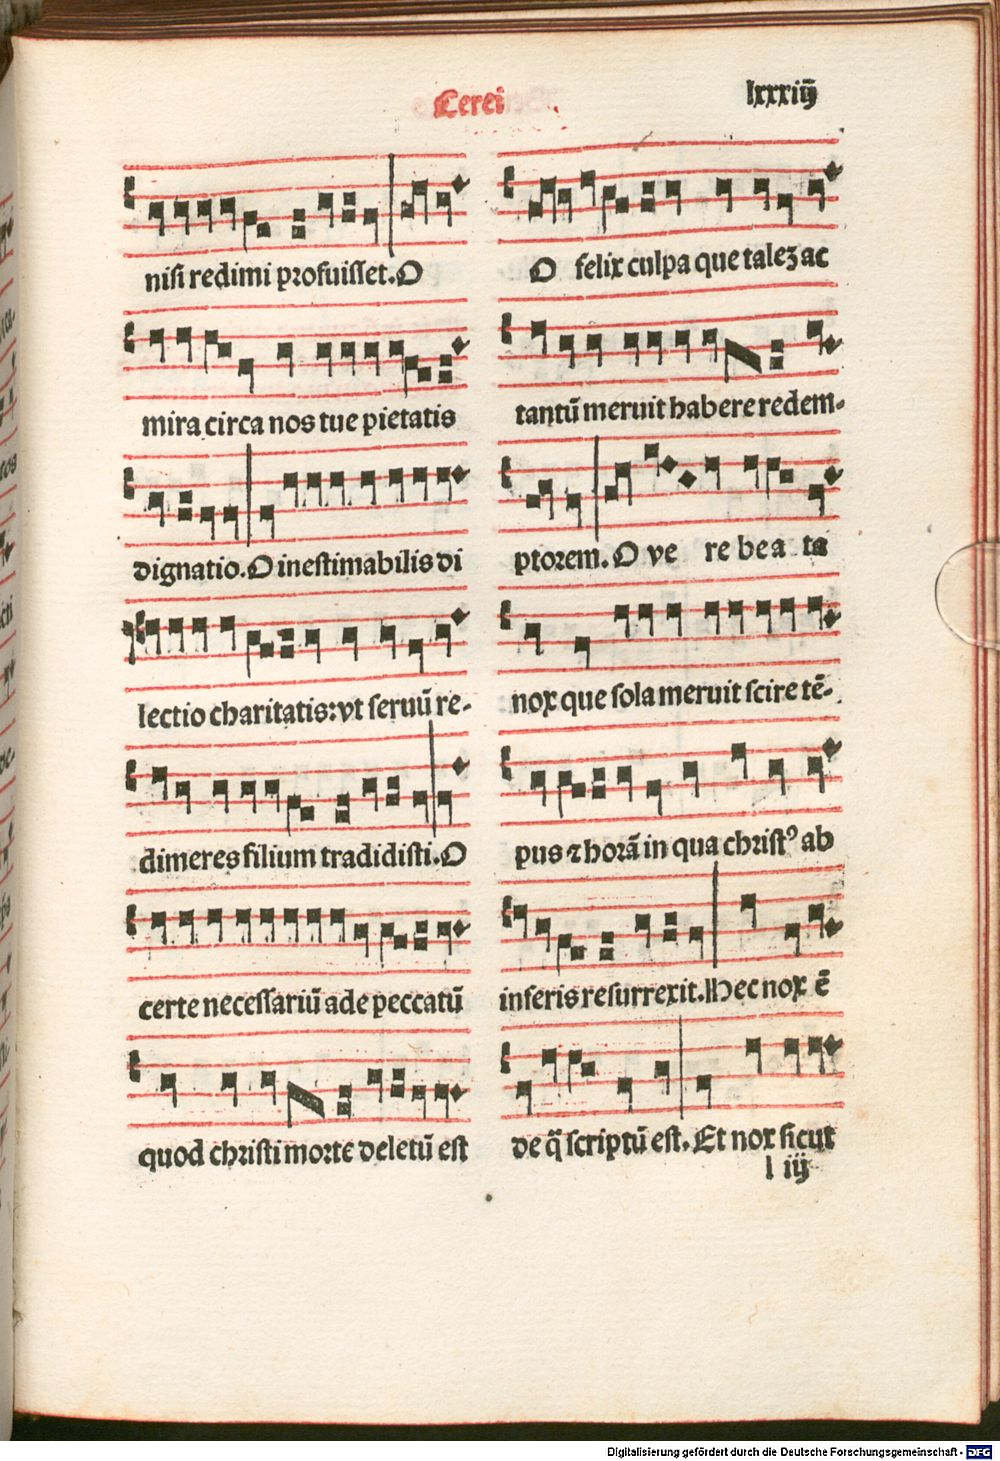 Cerei
lxxxiij
nisi redimi profuisset. O
mira circa nos tue pietatis
dignatio. O inestimabilis di
lectio charitatis: vt seruū re-
dimeres filium tradidisti. O
certe necessariū ade peccatū
quod christi morte deletū est
O felix culpa que talēʒ ac
tantū meruit habere redem-
ptorem. O ve re be a ta
nox que sola meruit scire tē-
pus ⁊ horā in qua christꝰ ab
inferis resurrexit. Hec nox ē
de q̄ scriptū est. Et nox sicut
l iij
Digitalisierung gefördert durch die Deutsche Forschungsgemeinschaft - DFG